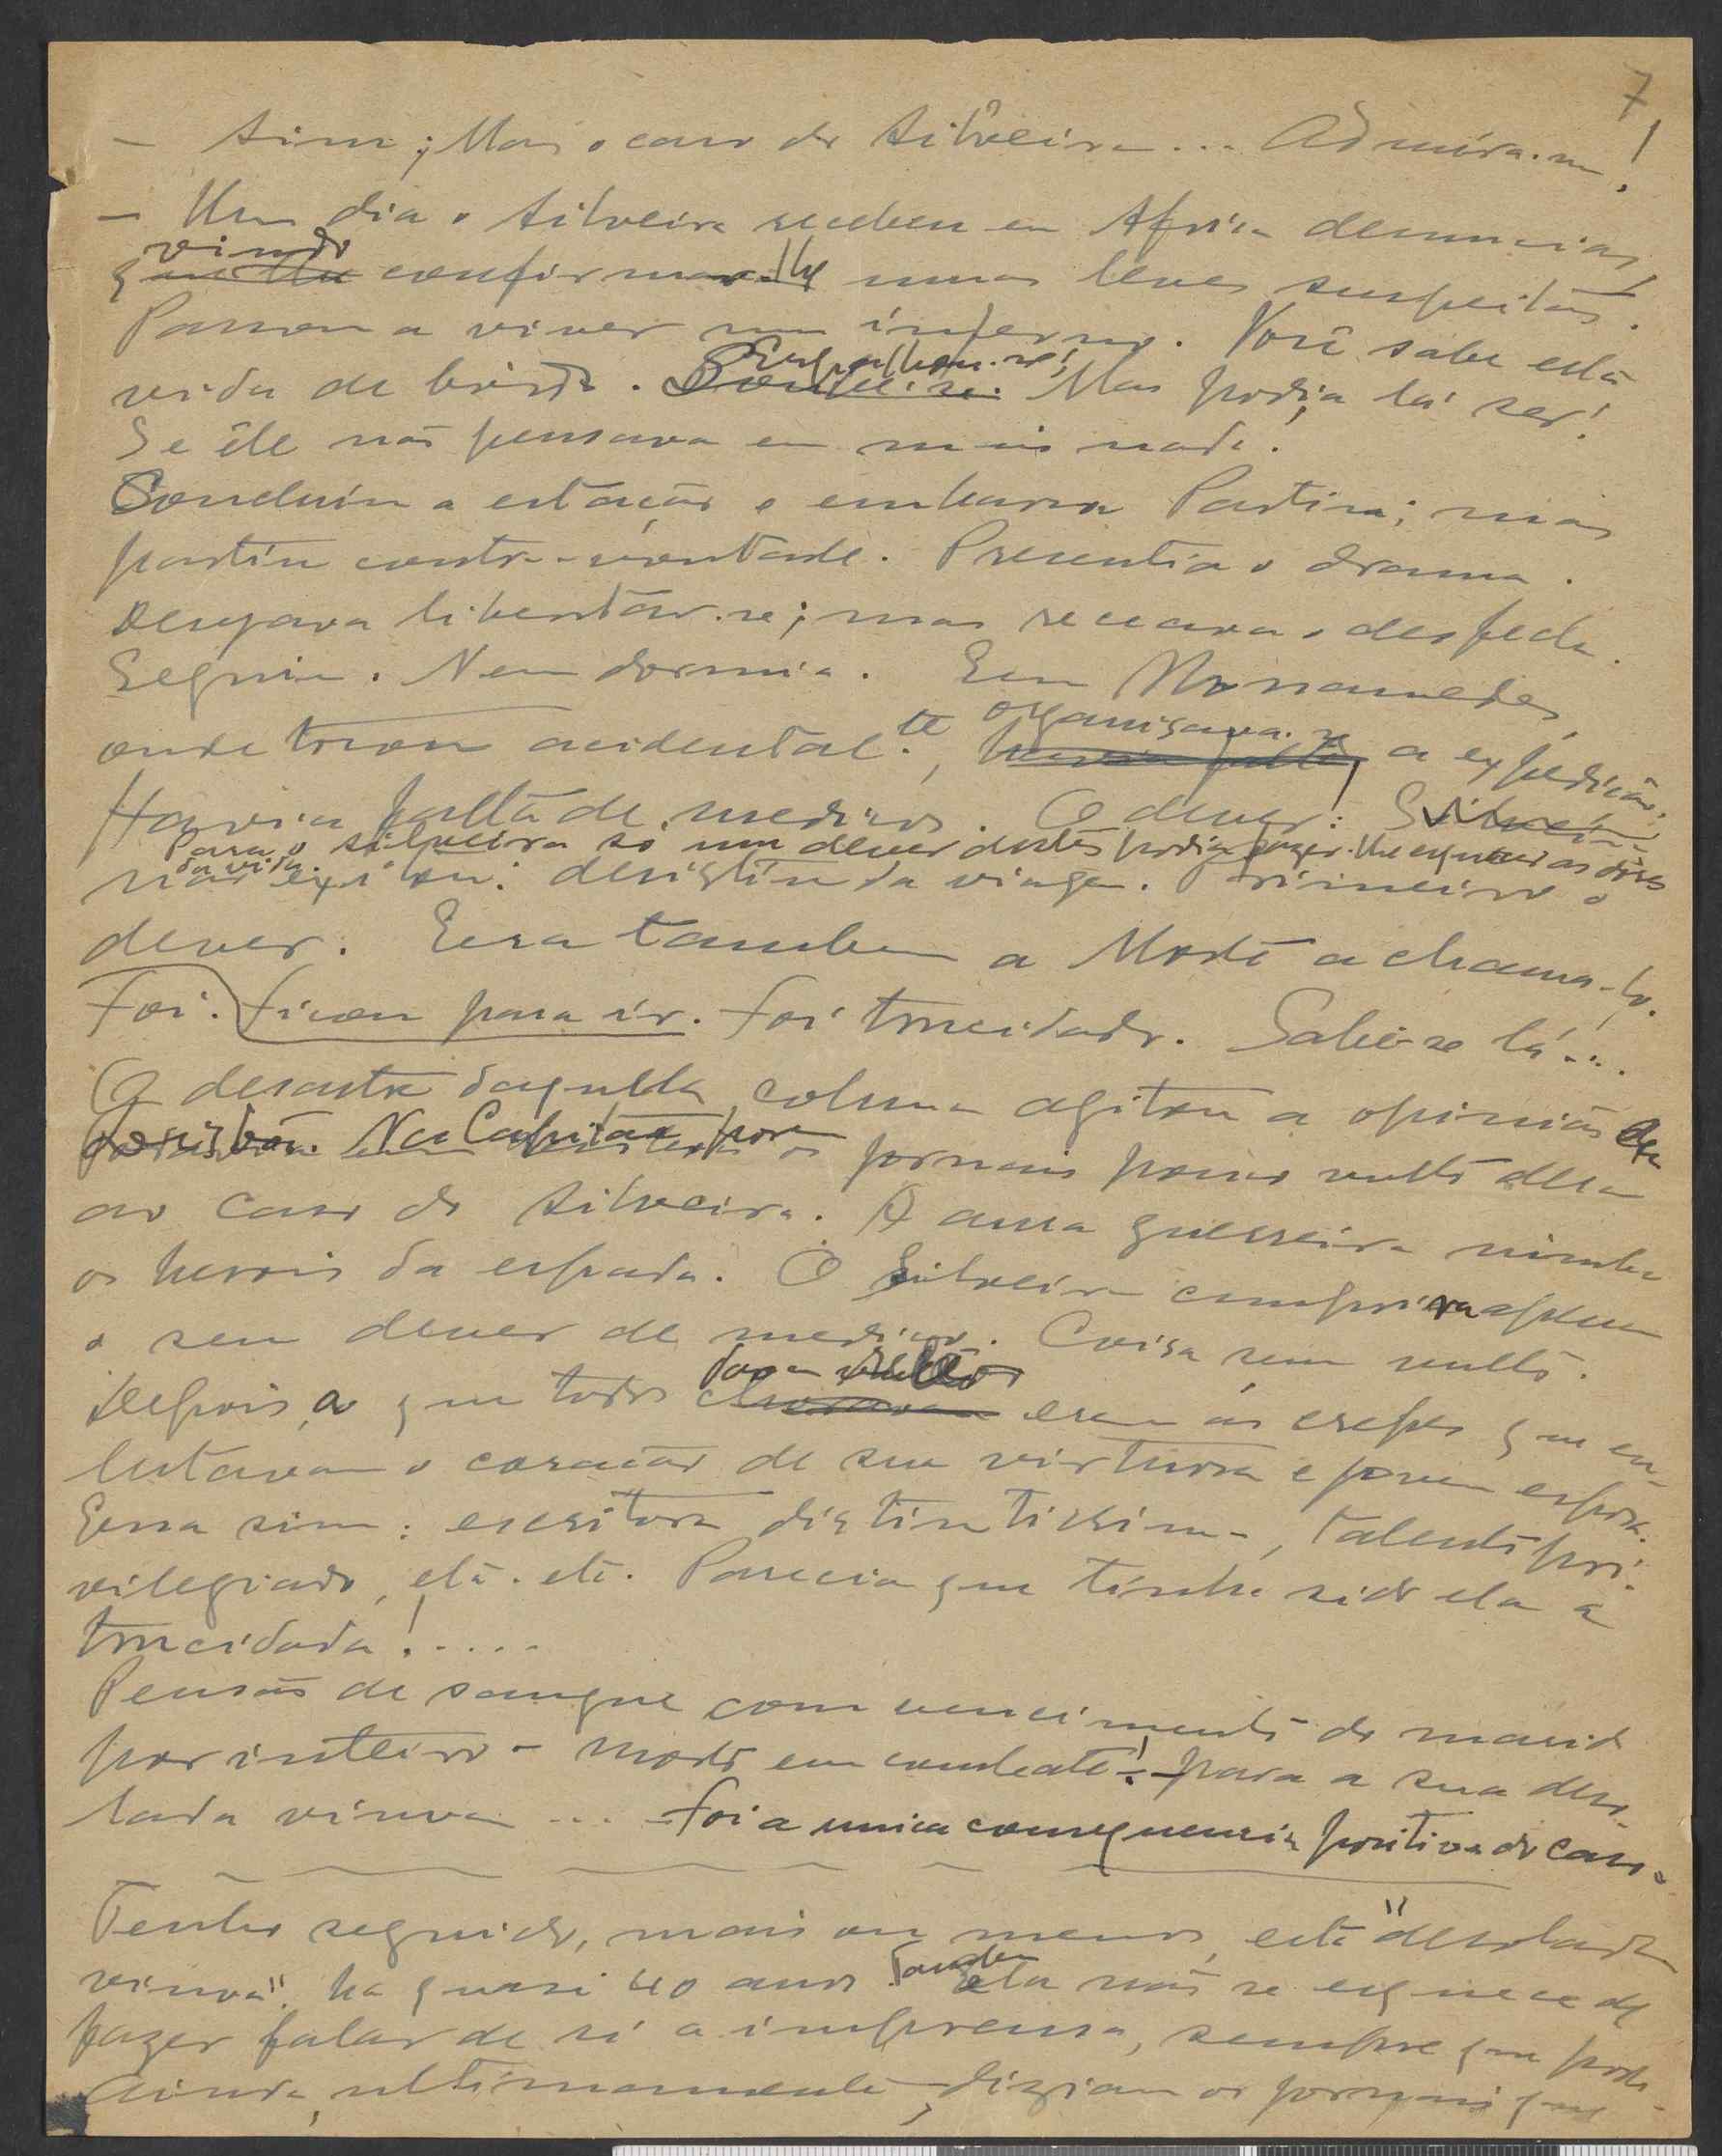 7
— Sim; Mas o caso do Silveira... Admira-me!
— Um dia o Silveira recebeu em Africa denuncias,
vindo
q confirmar-lhe umas leves suspeitas.
Passou a viver um inferno. Você sabe esta
vida de bordo. Espalhou-se; Mas podia lá ser!
Se êle não pensava em mais nada!
Concluiu a estação e embarca Partira; mas
partiu contra-vontade. Presentia o drama.
Desejava libertar-se; mas receava o desfecho.
Seguiu. Nem dormia. Em Mossamedes,
onde tocou acidental.te, organisava-se a expedição.
Havia falta de medicos. O dever:
Para o Silveira só um dever destes podia fazer-lhe esquecer as dôres
da vida.
não exitou: desistiu da viagem. Primeiro o
dever. Era tambem a Morte a chama-lo.
Foi. Ficou para ir. Foi trucidado. Sabe-se lá...
O desastre daquella coluna agitou a opinião de
Lisbôa. Na Capital porem os jornais pouco vulto deram
ao caso do Silveira. A aura guerreira nimba
os herois da espada. O Silveira comprira apenas
o seu dever de medico. Coisa sem vulto.
Depois, a que todos davam vulto eram ás crepes que en-
lutavam o coração de sua virtuosa e jovem esposa.
Essa sim: escritora distintissima, talento pri-
vilegiado, etc. etc. Parecia que tinha sido ela a
trucidada!.....
Pensão de sangue com vencimento do marido
por inteiro - morto em combate! - para a sua deso-
lada viuva ... - foi a unica consequencia positiva do caso.
Tenho seguido, mais ou menos, esta "desolada
viuva" ha quasi 40 anos. ela não se esquece de
fazer falar de si a imprensa, sempre que pode.
Ainda, ultimamente, diziam os jornais que